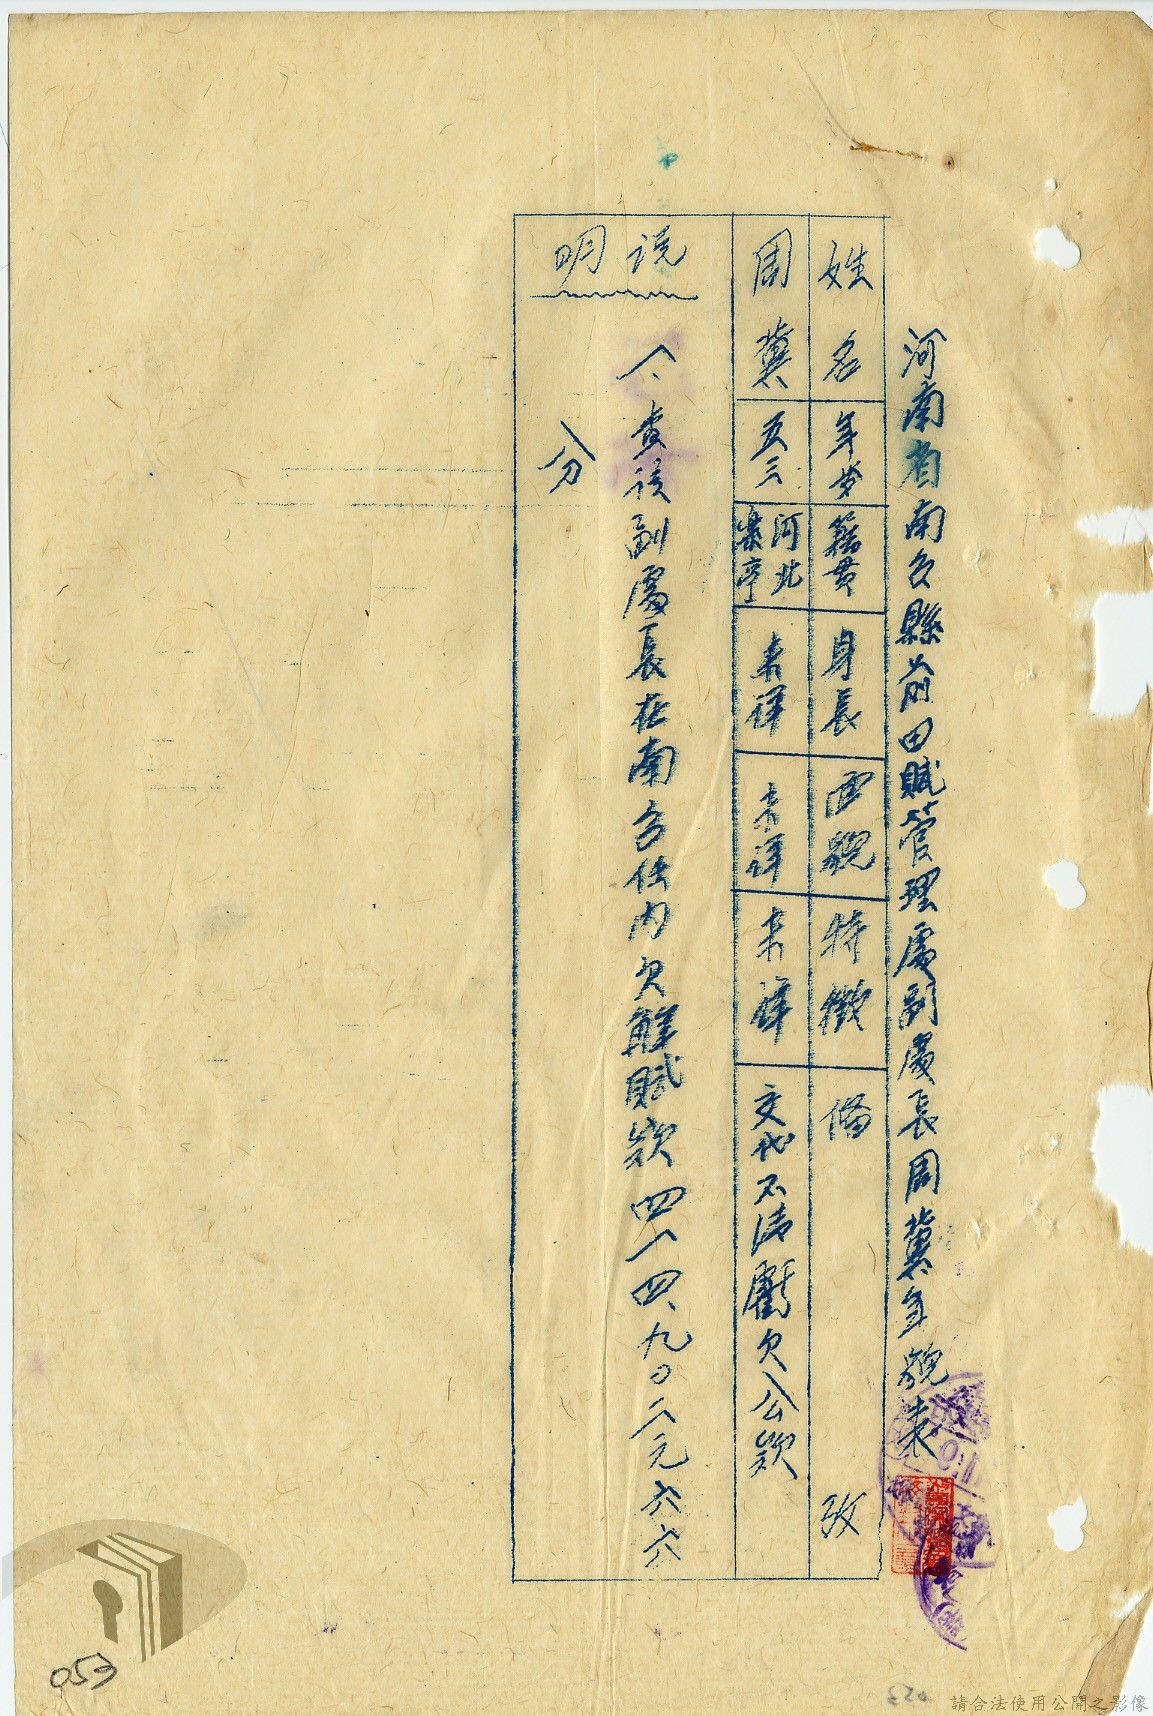 河南省南召縣前田賦管理處副處長周冀年貌表
姓名 年岁 籍貫 身長 面貌 特徵 備攷
周冀 五三 河北樂亭 未詳 未詳 未詳 交代不清虧欠公款
说明
一、查该副處長在南召任内欠解賦款四一四、九〇二元六六
分
053
請合法使用公開之影像